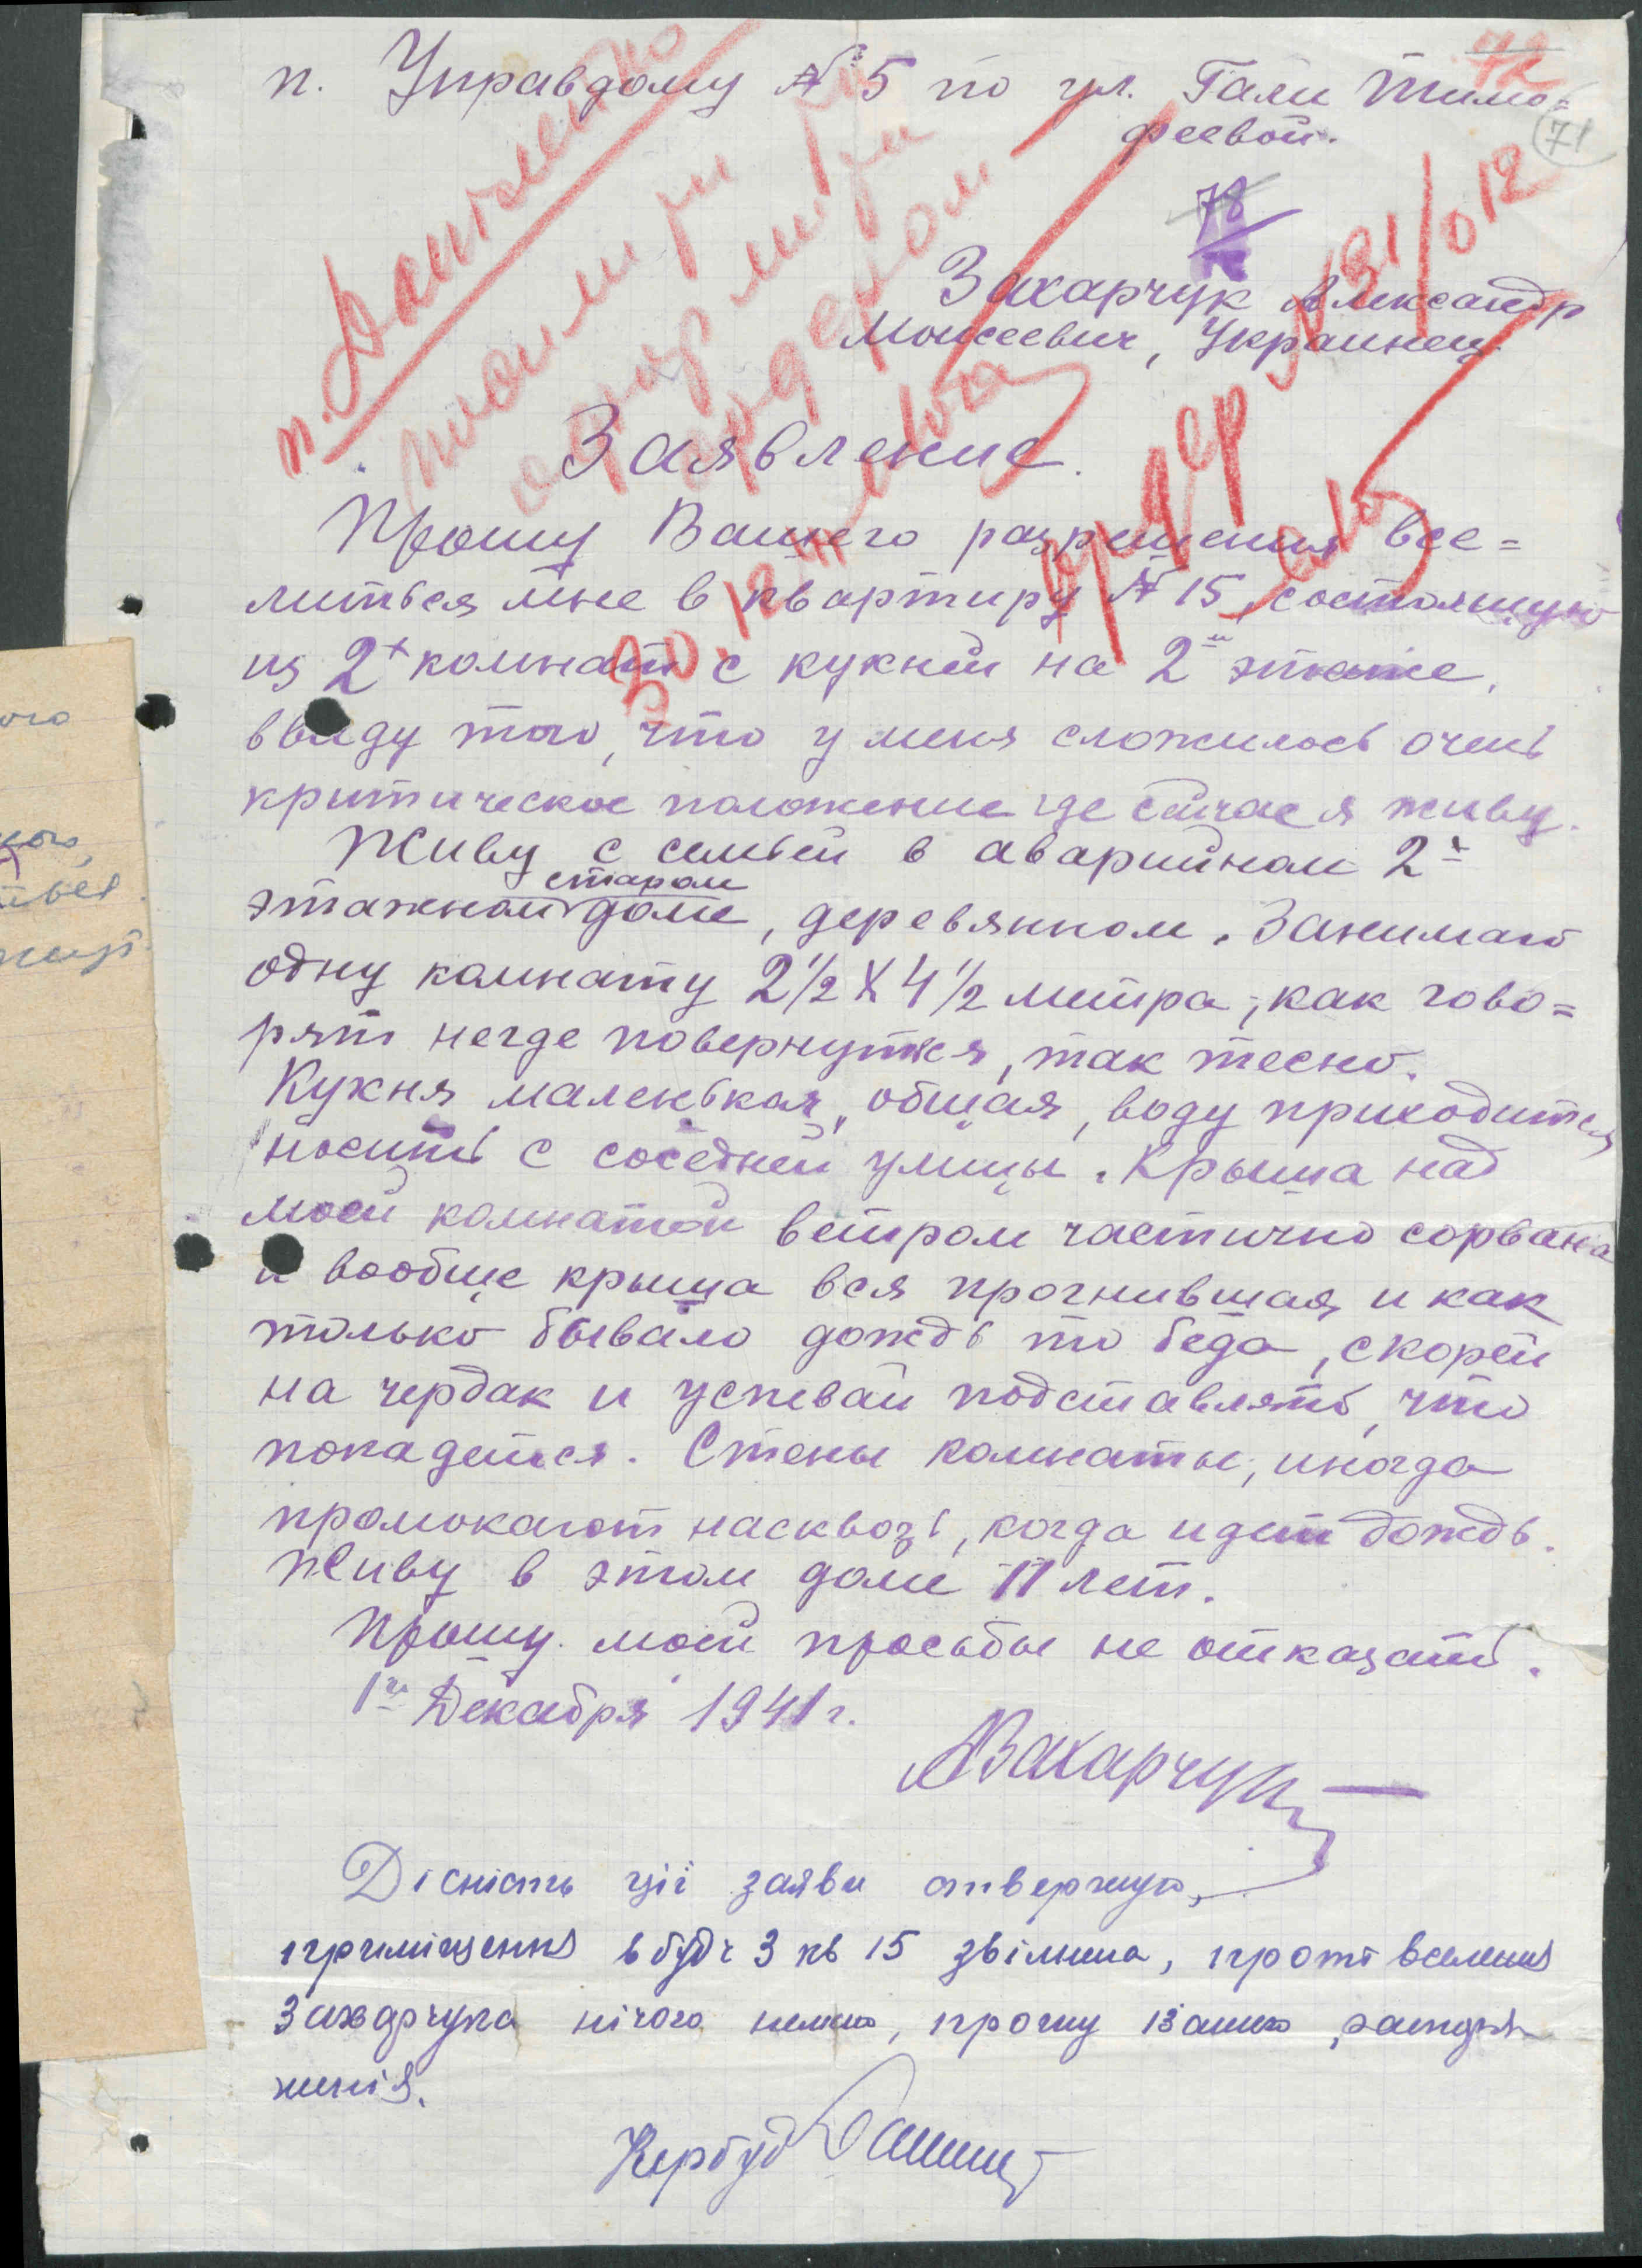 72
71
78
п. Управдому № 5 по ул. Гали Тимо=
феевой.
Захарчук Александр
Моисеевич, Украинец
Заявление.
Прошу Вашего разрешения все=
литься мне в квартиру № 15, состоящую
из 2х комнат с кухней на 2м этаже,
ввиду того, что у меня сложилось очень
критическое положение где сейчас я живу.
Живу с семьей в аварийном 2х
этажном старом доме, деревянном. Занимаю
одну комнату 2 1/2 X 4 1/2 метра, как гово=
рят негде повернуться, так тесно.
Кухня маленькая, общая, воду приходится
носить с соседней улицы. Крыша над
моей комнатой ветром частично сорвана
и вообще крыша вся прогнившая, и как
только бывало дождь то беда, скорей
на чердак и успевай подставлять, что
попадется. Стены комнаты, иногда
промокают насквозь, когда идет дождь.
Живу в этом доме 11 лет.
Прошу моей просьбы не отказать.
1го Декабря 1941 г.
АЗахарчук
Дісність ціі заяви ствержую,
приміщення в буд. 3 кв 15 звільнена, проти вселення
Захарчука нічого немаю, прошу Вашего распоря
женія.
Кербуд
п. Даниленко
30.12
Ордер